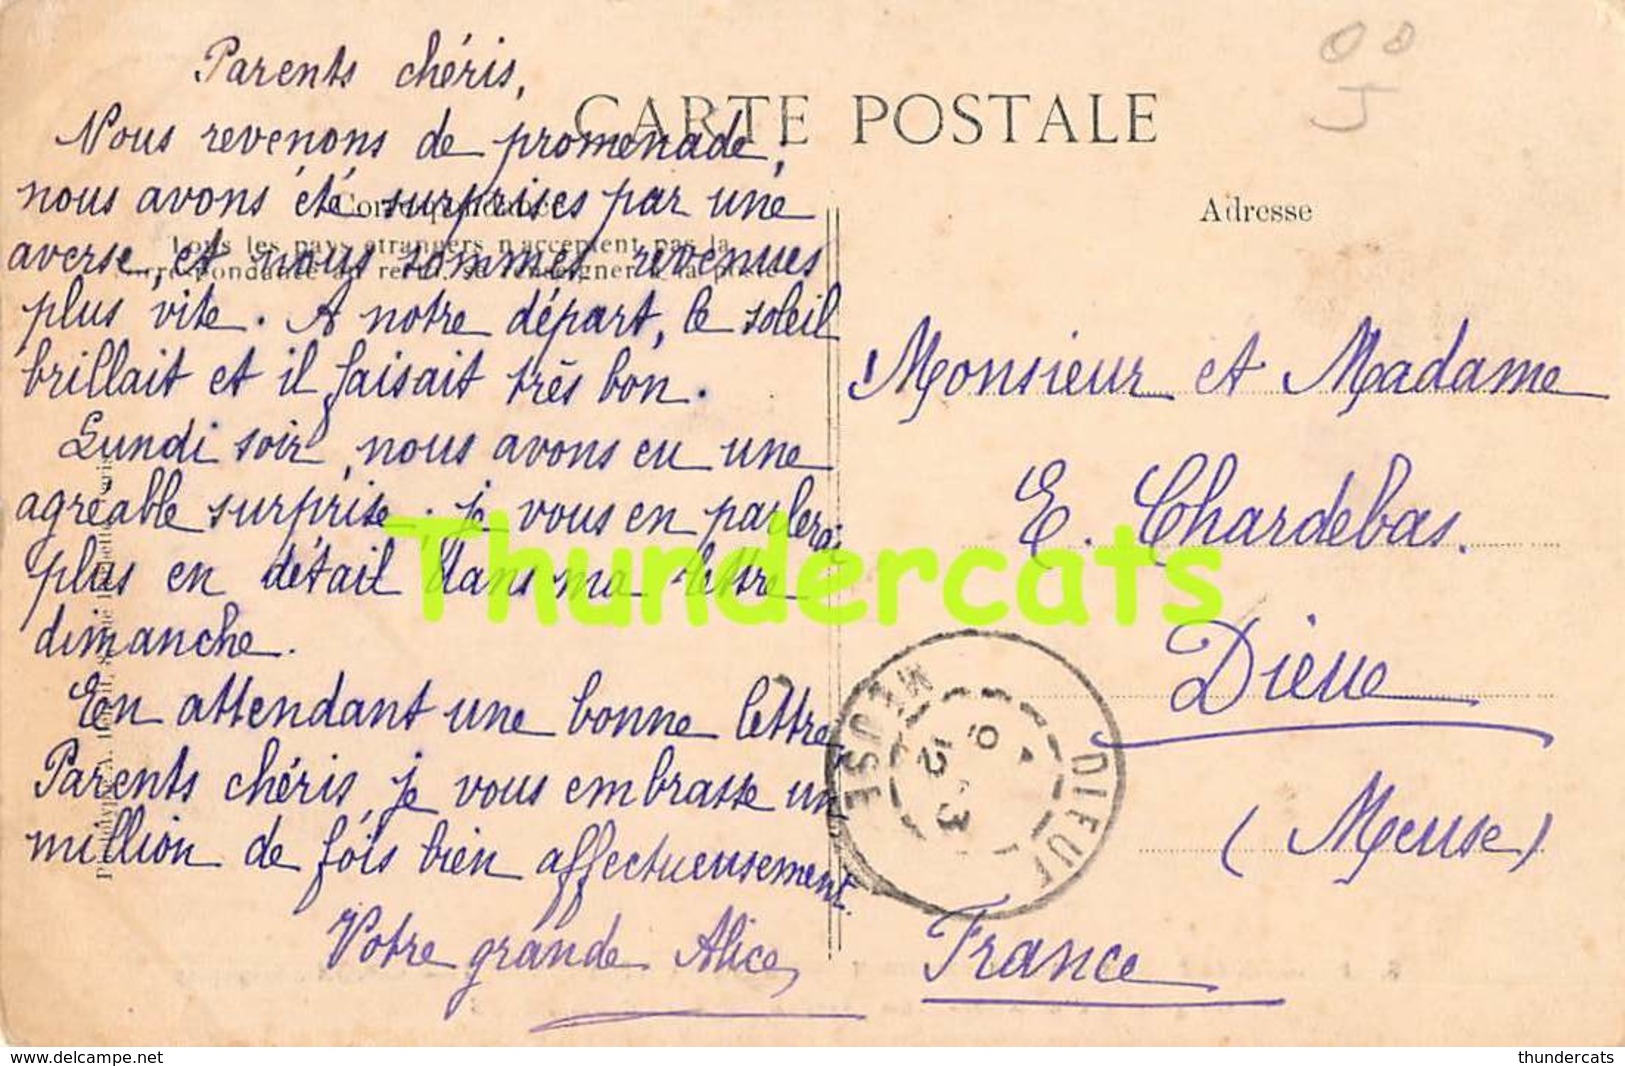 Parents chéris,
Nous revenons de promenade;
nous avons été surprises par une
averse, et nous sommes revenues
plus vite. A notre départ, le soleil
brillait et il faisait très bon.
Lundi soir, nous avons eu une
agréable surprise; je vous en parlerai
plus en détail dans ma lettre
dimanche.
En attendant une bonne lettre,
Parents chéris, je vous embrasse un
million de fois bien affectueusement.
Votre grande Alice
CARTE POSTALE
Correspondance
Tous les pays étrangers n'acceptent pas la
correspondance au recto, se renseigner à la poste
Adresse
Monsieur et Madame
E. Chardebas.
Dieue
(Meuse)
France
DIEUE
MEUSE
Thundercats
thundercats.delcampe.net
thundercats